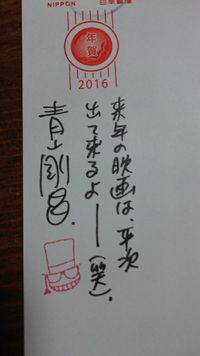 NIPPON 日本郵便
年賀
2016
来年の映画は、平次
出て来るよ――(笑).
青山剛昌.